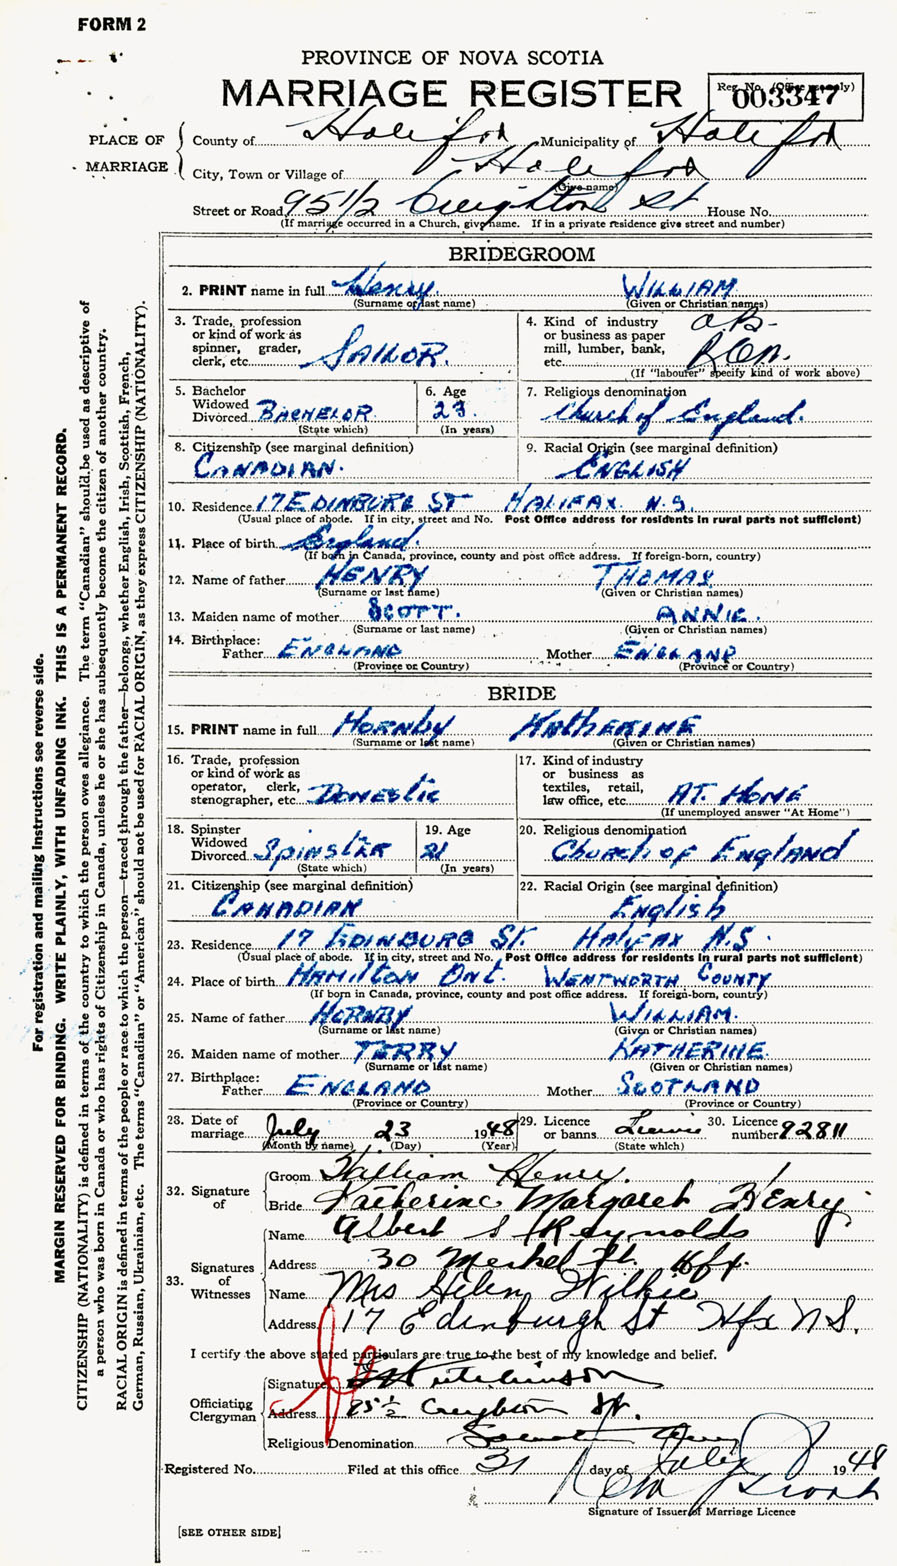 FORM 2
PROVINCE OF NOVA SCOTIA
MARRIAGE REGISTER
Reg. No. (Office use only)
003347
PLACE OF MARRIAGE
County of Halifax Municipality of Halifax
City, Town or Village of Halifax
(Give name)
Street or Road 95 1/2 Creighton St House No.
(If marriage occurred in a Church, give name. If in a private residence give street and number)
BRIDEGROOM
2. PRINT name in full Henry. WILLIAM
(Surname or last name) (Given or Christian names)
3. Trade, profession or kind of work as spinner, grader, clerk, etc. SAILOR.
4. Kind of industry or business as paper mill, lumber, bank, etc. AB- RCN.
(If "labourer" specify kind of work above)
5. Bachelor Widowed Divorced BACHELOR
(State which)
6. Age 23.
(In years)
7. Religious denomination Church of England.
8. Citizenship (see marginal definition) CANADIAN.
9. Racial Origin (see marginal definition) ENGLISH
10. Residence 17 EDINBURG ST HALIFAX N.S.
(Usual place of abode. If in city, street and No. Post Office address for residents in rural parts not sufficient)
11. Place of birth England.
(If born in Canada, province, county and post office address. If foreign-born, country)
12. Name of father HENRY THOMAS
(Surname or last name) (Given or Christian names)
13. Maiden name of mother SCOTT. ANNIE.
(Surname or last name) (Given or Christian names)
14. Birthplace: Father ENGLAND Mother ENGLAND
(Province or Country) (Province or Country)
BRIDE
15. PRINT name in full HORNBY KATHERINE
(Surname or last name) (Given or Christian names)
16. Trade, profession or kind of work as operator, clerk, stenographer, etc. DOMESTIC
17. Kind of industry or business as textiles, retail, law office, etc. AT. HOME
(If unemployed answer "At Home")
18. Spinster Widowed Divorced SPINSTER
(State which)
19. Age 21
(In years)
20. Religious denomination CHURCH OF ENGLAND
21. Citizenship (see marginal definition) CANADIAN
22. Racial Origin (see marginal definition) English
23. Residence 17 EDINBURG ST. HALIFAX N.S.
(Usual place of abode. If in city, street and No. Post Office address for residents in rural parts not sufficient)
24. Place of birth HAMILTON ONT. WENTWORTH COUNTY
(If born in Canada, province, county and post office address. If foreign-born, country)
25. Name of father HORNBY WILLIAM.
(Surname or last name) (Given or Christian names)
26. Maiden name of mother TERRY KATHERINE.
(Surname or last name) (Given or Christian names)
27. Birthplace: Father ENGLAND Mother SCOTLAND
(Province or Country) (Province or Country)
28. Date of marriage July 23 1948
(Month by name) (Day) (Year)
29. Licence or banns
(State which)
30. Licence number 92811
32. Signature of
Groom William Henry.
Bride Katherine Margaret Henry
33. Signatures of Witnesses
Name Albert S Reynolds
Address 30 Merkel St. Hfx.
Name Mrs Helen Wilkie
Address 17 Edinburgh St Hfx N.S.
I certify the above stated particulars are true to the best of my knowledge and belief.
Officiating Clergyman
Signature Hutchinson
Address 95 1/2 Creighton St.
Religious Denomination Salvation Army
Registered No. Filed at this office 31 day of July 1948
Signature of Issuer of Marriage Licence
[SEE OTHER SIDE]
For registration and mailing instructions see reverse side.
MARGIN RESERVED FOR BINDING. WRITE PLAINLY, WITH UNFADING INK. THIS IS A PERMANENT RECORD.
CITIZENSHIP (NATIONALITY) is defined in terms of the country to which the person owes allegiance. The term "Canadian" should be used as descriptive of
a person who was born in Canada or who has rights of Citizenship in Canada, unless he or she has subsequently become the citizen of another country.
RACIAL ORIGIN is defined in terms of the people or race to which the person—traced through the father—belongs, whether English, Irish, Scottish, French,
German, Russian, Ukrainian, etc. The terms "Canadian" or "American" should not be used for RACIAL ORIGIN, as they express CITIZENSHIP (NATIONALITY).